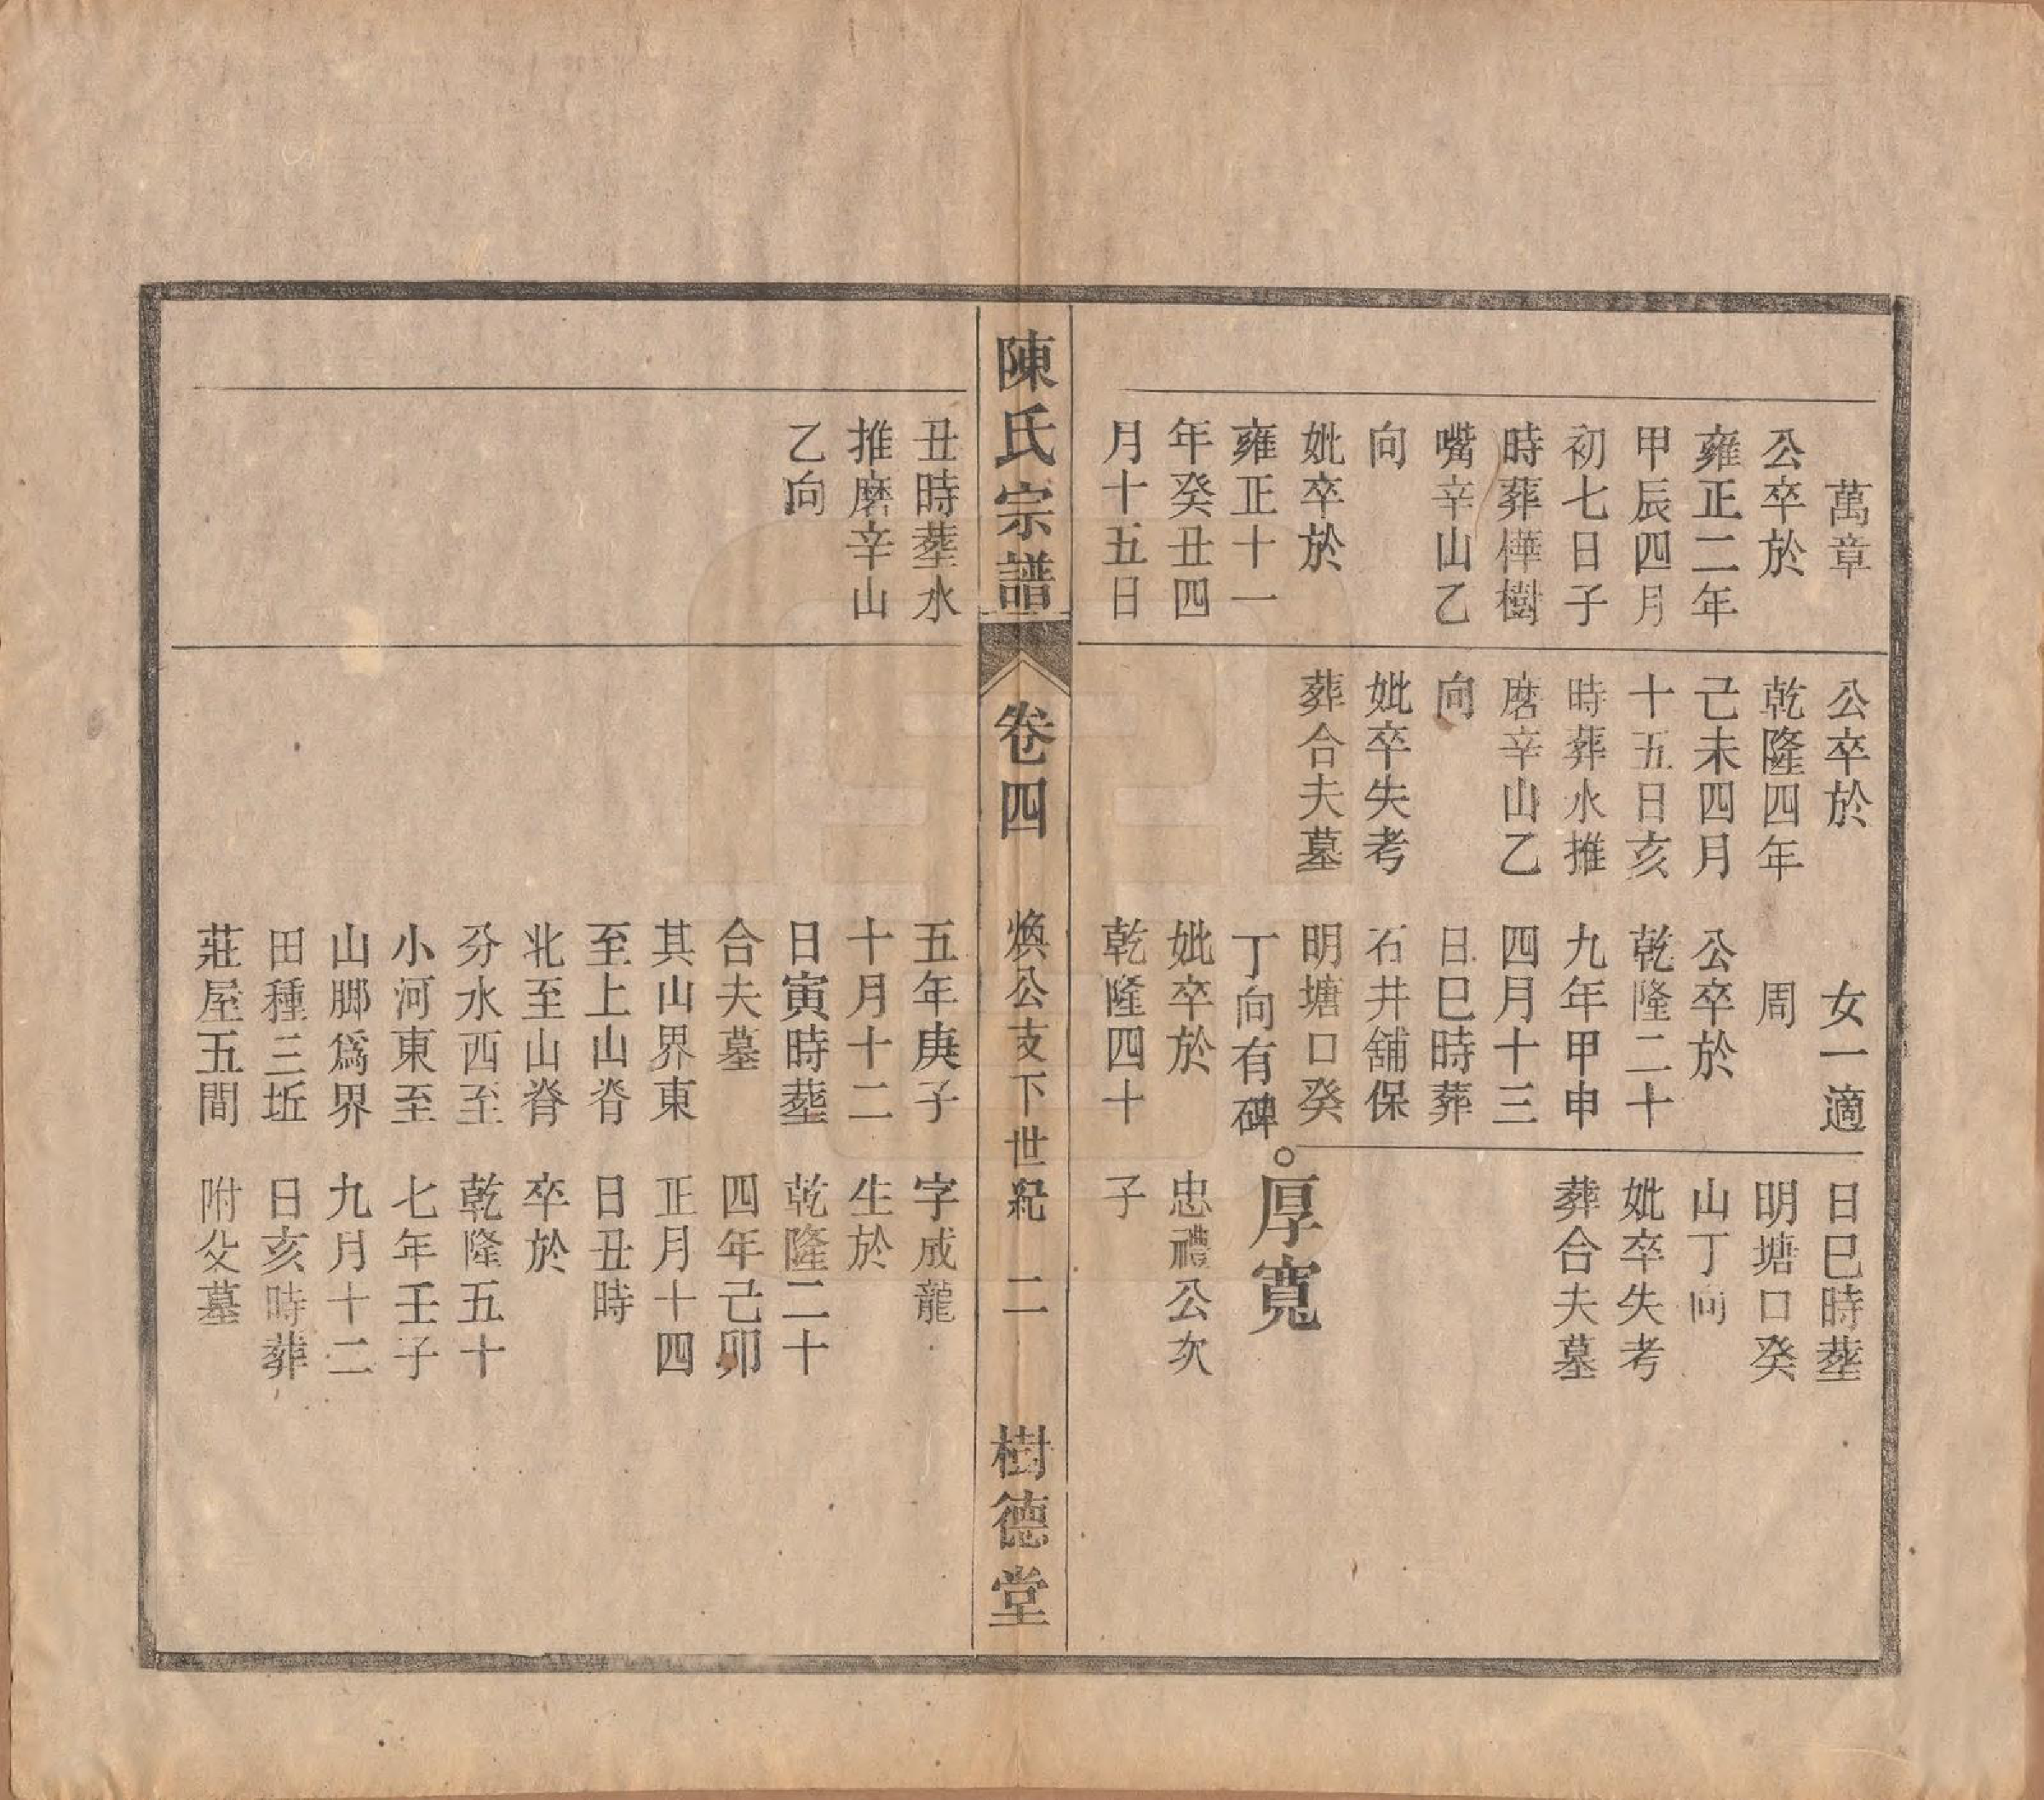 萬章
公卒於
雍正二年
甲辰四月
初七日子
時葬樺樹
嘴辛山乙
向
妣卒於
雍正十一
年癸丑四
月十五日
公卒於
乾隆四年
己未四月
十五日亥
時葬水推
磨辛山乙
向
妣卒失考
葬合夫墓
女一適
周
公卒於
乾隆二十
九年甲申
四月十三
日巳時葬
石井舖保
明塘口癸
丁向有碑
妣卒於
乾隆四十
日巳時塟
明塘口癸
山丁向
妣卒失考
葬合夫墓
厚寬
忠禮公次
子
陳氏宗譜 卷四 煥公支下世紀 二 樹德堂
丑時塟水
推磨辛山
乙向
五年庚子
十月十二
日寅時塟
合夫墓
其山界東
至上山脊
北至山脊
分水西至
小河東至
山脚爲界
田種三坵
莊屋五間
字成龍
生於
乾隆二十
四年己卯
正月十四
日丑時
卒於
乾隆五十
七年壬子
九月十二
日亥時葬
附父墓